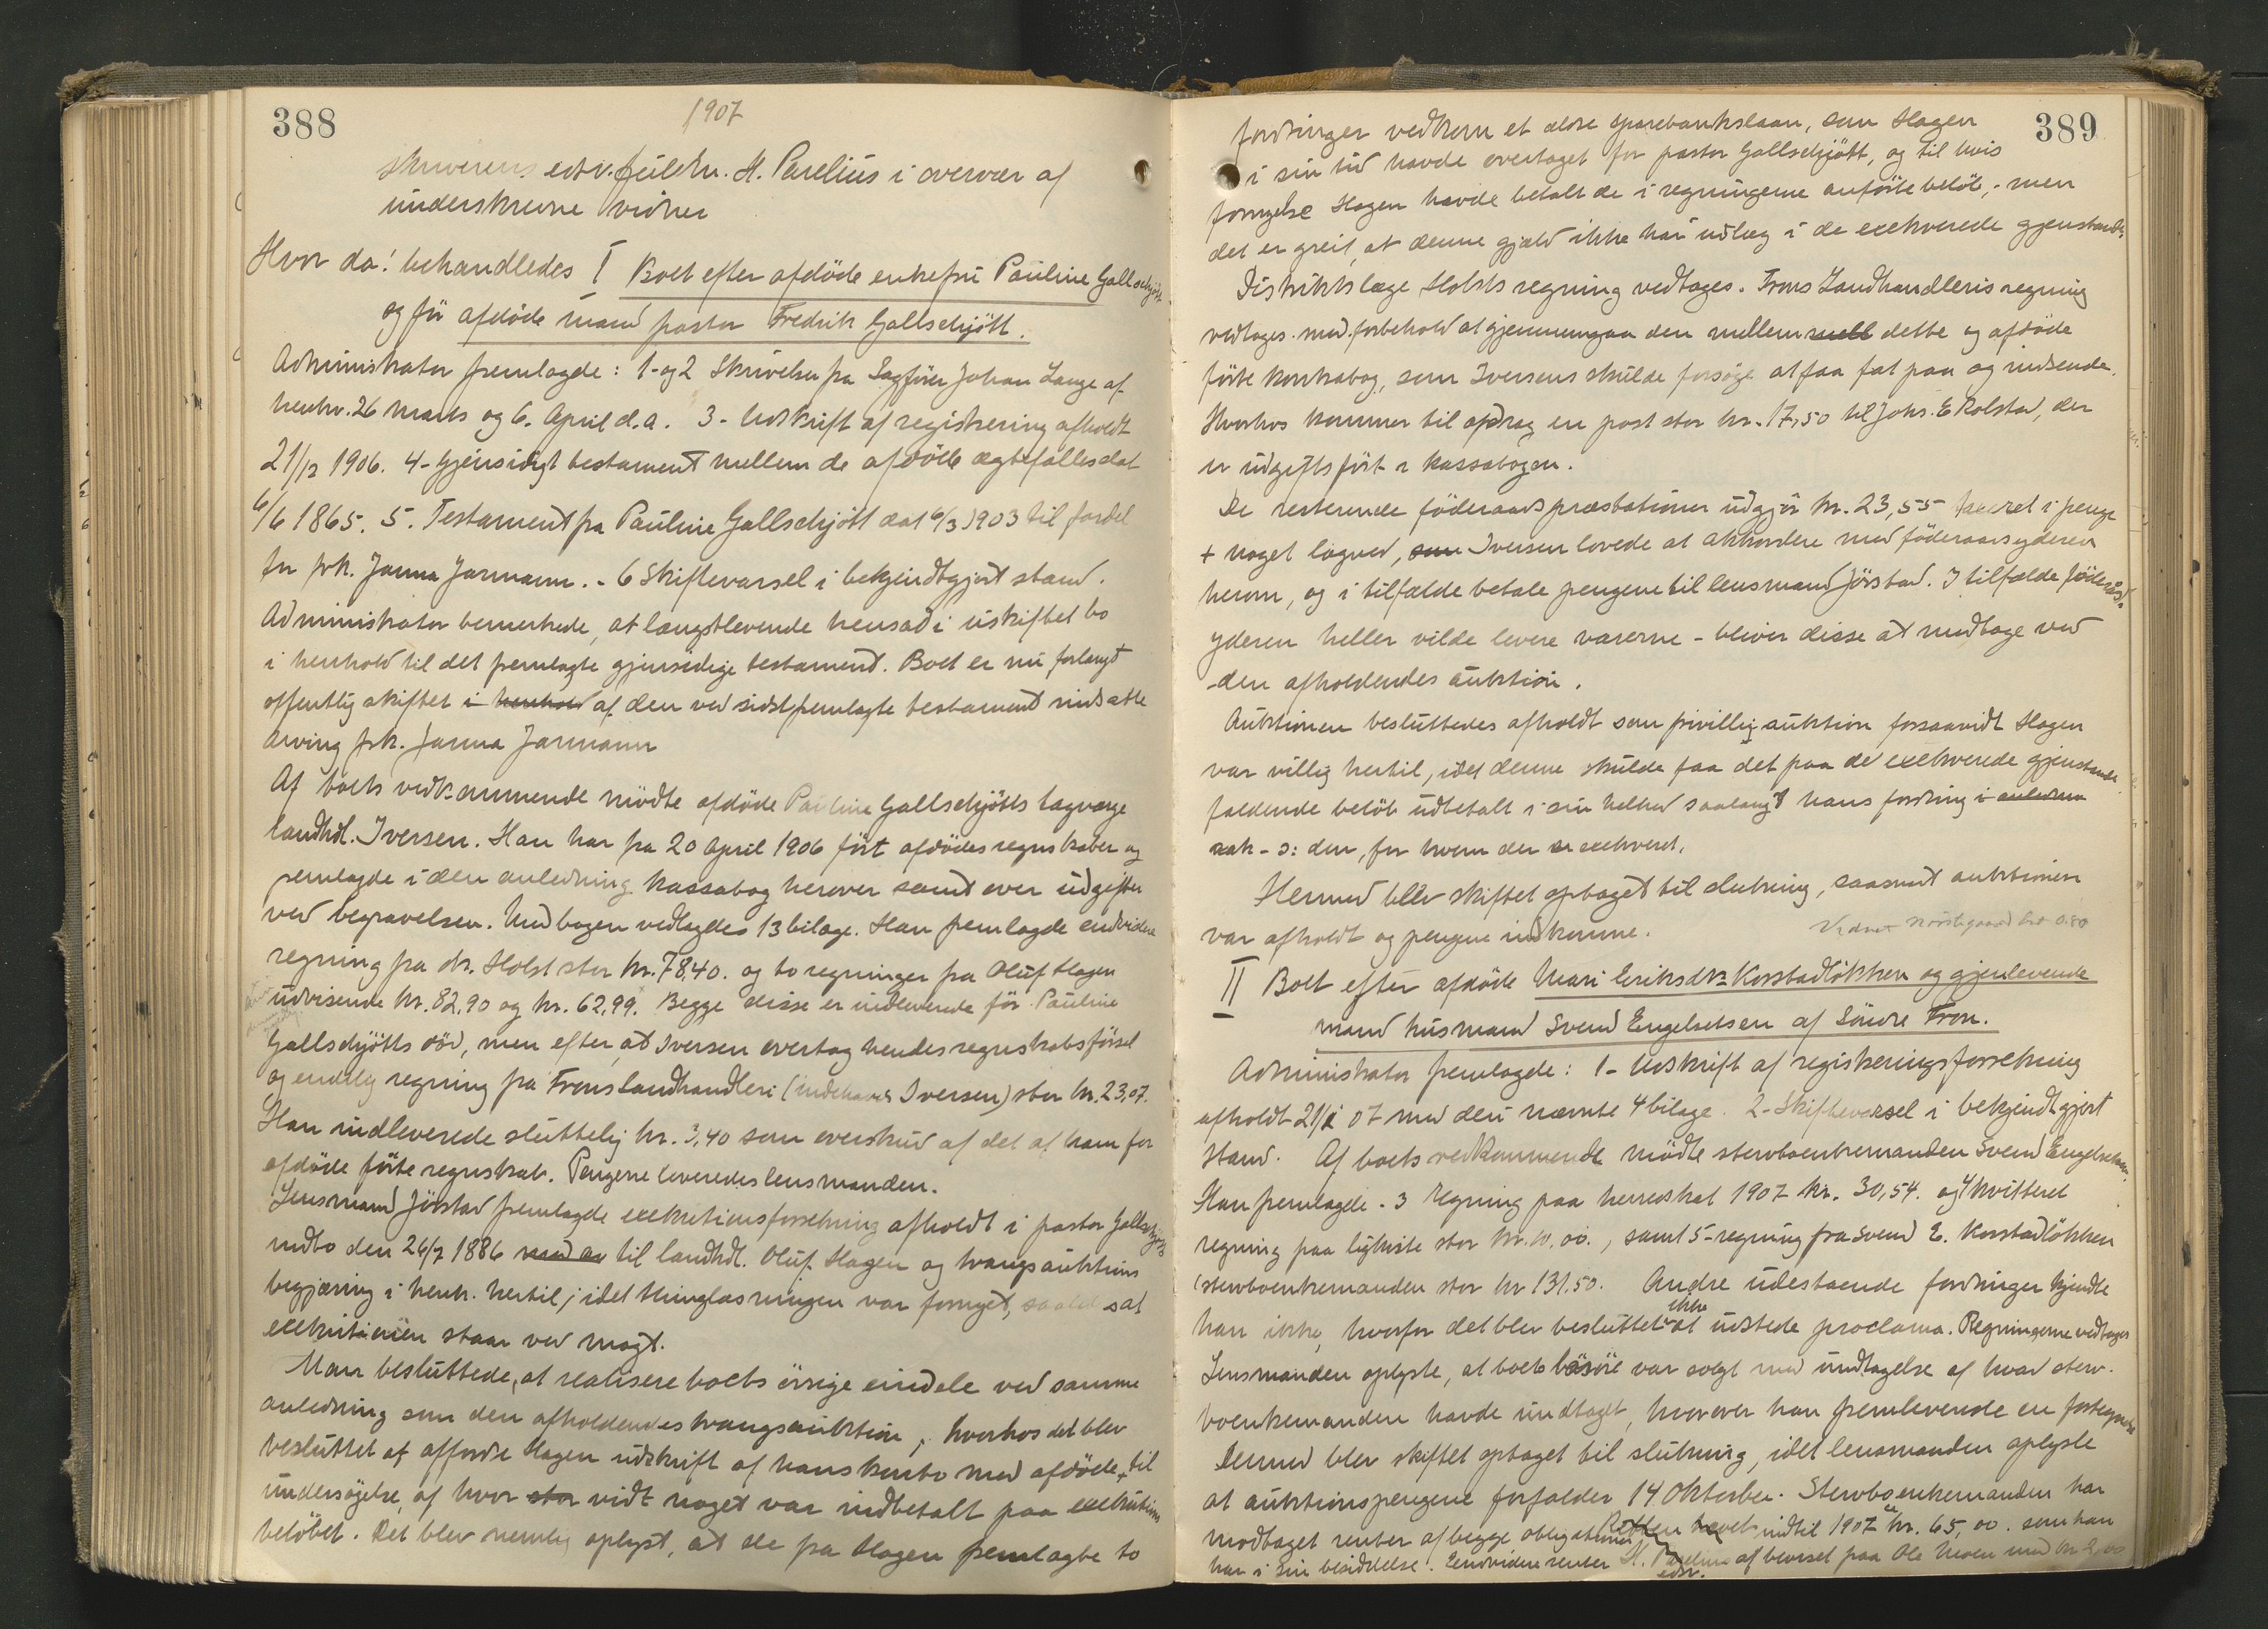 388
1907
skriverens edsv. fuldm. H. Parelius i overvær af
underskrevne vidner
Hvor da! behandledes I Boet efter afdöde enkefru Pauline Gallschjött
og för afdöde mand pastor Fredrik Gallschjött.
Administrator fremlagde: 1- og 2 Skrivelser fra Sagförer Johan Lange af
henhv. 26 marts og 6. April d.a. 3- Udskrift af registrering afholdt
21/12 1906. 4- Gjensidigt testament mellem de afdöde ægtefælles dat
6/6 1865. 5. Testament fra Pauline Gallschjött dat 6/3 1903 til fordel
for frk. Janna Jarmann. - 6 Skiftevarsel i bekjendtgjort stand.
Administrator bemerkede, at længstlevende hensad i uskiftet bo
i henhold til det fremlagte gjensedige testament. Boet er nu forlangt
offentlig skiftet i henhold af den ved sidst fremlagte testament indsatte
arving frk. Janna Jarmann
Af boets vedkommende mödte afdöde Pauline Gallschjötts lagværge
landhdl. Iversen. Han har fra 20 April 1906 fört afdödes regnskaber og
fremlagde i den anledning kassabog herover samt over udgifter
ved begravelsen. Med bogen vedlagdes 13 bilage. Han fremlagde endvidere
regning fra dr. Holst stor kr. 78,40. og to regninger fra Oluf Hagen
udvisende kr. 82,90 og kr. 62,99. Begge disse er indleverede för Pauline
Gallschjötts död, men efter at Iversen overtog hendes regnskabsförsel
og endelig regning fra Frons Landhandleri (indehaver Iversen) stor kr. 23,07.
Han indleverede sluttelig kr. 3,40 som overskud af det af ham for
afdöde förte regnskab. Pengene leveredes lensmanden.
Lensmand Jörstad fremlagde exekutionsforretning afholdt i pastor Gallschjötts
indbo den 26/7 1886 til landhdl. Oluf Hagen og tvangsauktions
begjæring i henh. hertil, idet thinglæsningen var fornyet, saaledes at
exekutionen staar ved magt.
Man besluttede, at realisere boets övrige eiendele ved samme
anledning som den afholdendes tvangsauktion, hvorhos det blev
besluttet at affordre Hagen udskrift af hans konto med afdöde, til
undersögelse af hvor stor vidt noget var indbetalt paa exekutions
belöbet. Det blev nemlig oplyst, at de fra Hagen fremlagte to
389
fordringer vedkom et ældre sparebankslaan, som Hagen
i sin tid havde overtaget for pastor Gallschjött, og til hvis
fornyelse Hagen havde betalt de i regningerne anförte belöb, - men
det er greit, at denne gjæld ikke har udlæg i de exekverede gjenstande.
Distriktslæge Holsts regning vedtages. Frons Landhandleris regning
vedtages med forbehold at gjennemgaa den mellem mell dette og afdöde
förte kontrabog, som Iversens skulde forsöge at faa fat paa og indsende.
Hvorhos kommer til afdrag en post stor kr. 17,50 til Johs. E Kolstad, der
er udgiftsfört i kassabogen.
De resterende föderaadspræstationer udgjör kr. 23,55 i penge
+ noget lagved, som Iversen lovede at akkordere med föderaadsyderen
herom, og i tilfælde betale pengene til lensmand Jörstad. I tilfælde föderaads
yderen heller vilde levere varerne - bliver disse at medtage ved
den afholdendes auktion.
Auktionen besluttedes afholdt som frivillig auktion forsaavidt Hagen
var villig hertil, idet denne skulde faa det paa de exekverede gjenstande
faldende belöb udbetalt i sin helhed saalangt hans fordring i
sak - ɔ: den, for hvem der er exekveret.
Hermed blev skiftet optaget til slutning, saasnart auktionen
var afholdt og pengene indkomne.
II Boet efter afdöde Mari Eriksdtr Korstadlökken og gjenlevende
mand husmand Svend Engebretsen af Söndre Fron.
Administrator fremlagde: 1- Udskrift af registreringsforretning
afholdt 21/1 07 med deri nævnte 4 bilage. 2- Skiftevarsel i bekjendtgjort
stand. Af boets vedkommende mödte stervboenkemanden Svend Engebretsen.
Han fremlagde - 3 Regning paa herredskat 1907 kr. 30,54. og 4 kvitteret
regning paa ligkiste stor kr. 10,00., samt 5- regning fra Svend E. Korstadlökken
(stervboenkemanden stor kr 131.50. Andre udestaaende fordringer kjendte
han ikke, hvorfor det blev besluttet ikke at udstede proclama. Regningerne vedtoges
Lensmanden oplyste, at boets lösöre var solgt med undtagelse af hvad sterv-
boenkemanden havde undtaget, hvorover han fremleverede en fortegnelse
Dermed blev skiftet optaget til slutning, idet lensmanden oplyste
at auktionspengene forfalder 14 Oktober. Stervboenkemanden har
modtaget renter af begge obligationer indtil 1907 kr. 65,00. som han
har i sin besiddelse. Endvidere renter af beviset paa Ole Moen med kr 2,00
Retten hævet
H. Parelius
edsv.